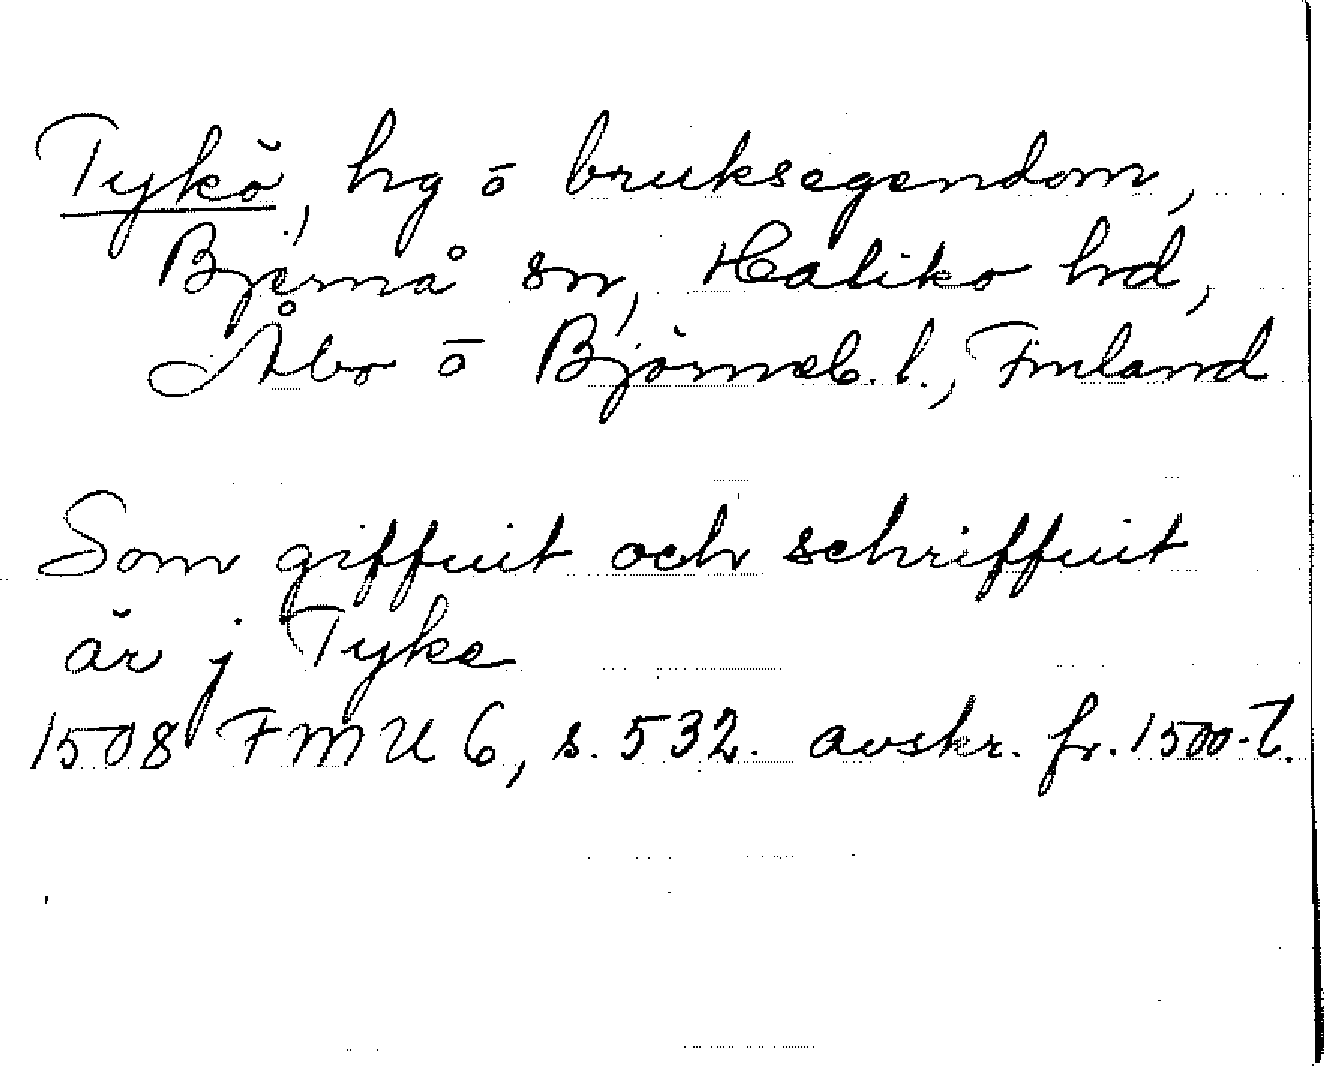 Tykö, hg ō bruksegendom,
Bjärnå sn, Haliko hd,
Åbo ō Björneb. l., Finland
Som giffuit och schriffuit
är j Tyke
1508 FMU 6, s. 532. avskr. fr. 1500-t.